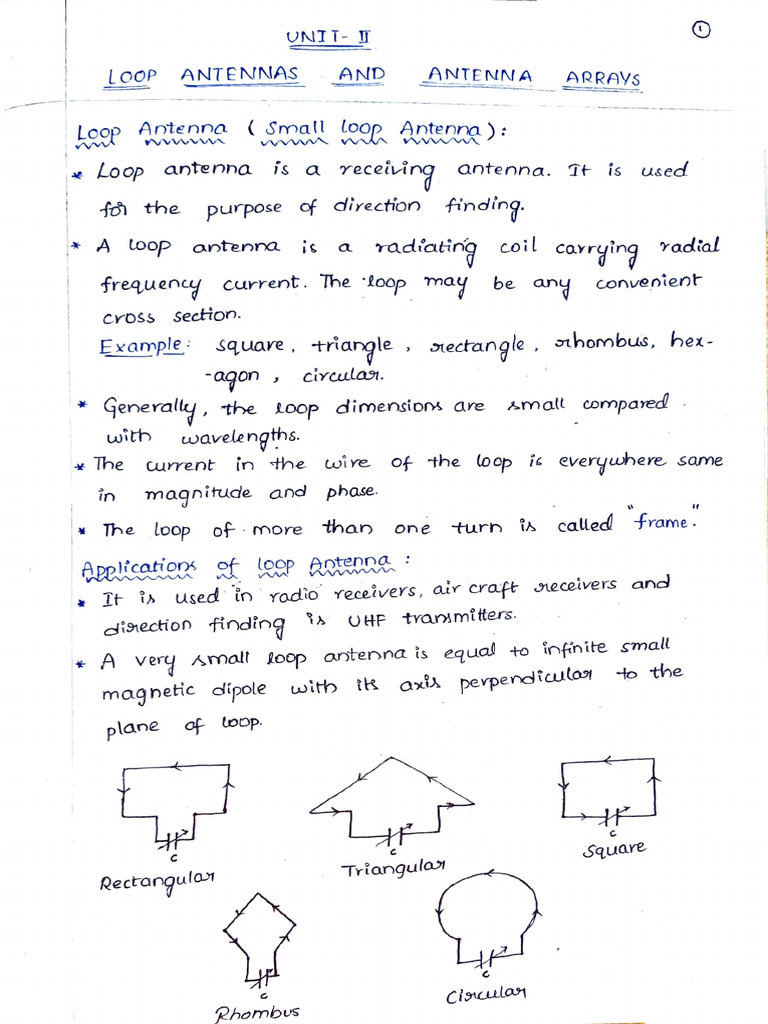 1
UNIT- II
LOOP ANTENNAS AND ANTENNA ARRAYS
Loop Antenna (Small loop Antenna):
* Loop antenna is a receiving antenna. It is used
for the purpose of direction finding.
* A loop antenna is a radiating coil carrying radial
frequency current. The loop may be any convenient
cross section.
Example: square, triangle, rectangle, rhombus, hex-
-agon, circular.
* Generally, the loop dimensions are small compared
with wavelengths.
* The current in the wire of the loop is everywhere same
in magnitude and phase.
* The loop of more than one turn is called "frame."
Applications of loop Antenna:
* It is used in radio receivers, air craft receivers and
direction finding is UHF transmitters.
* A very small loop antenna is equal to infinite small
magnetic dipole with its axis perpendicular to the
plane of loop.
C
C
C
Rectangular
Triangular
Square
C
C
Rhombus
Circular